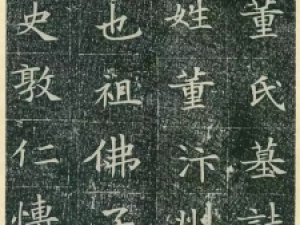 董氏墓誌
姓董汴州
也祖佛子
史敦仁博